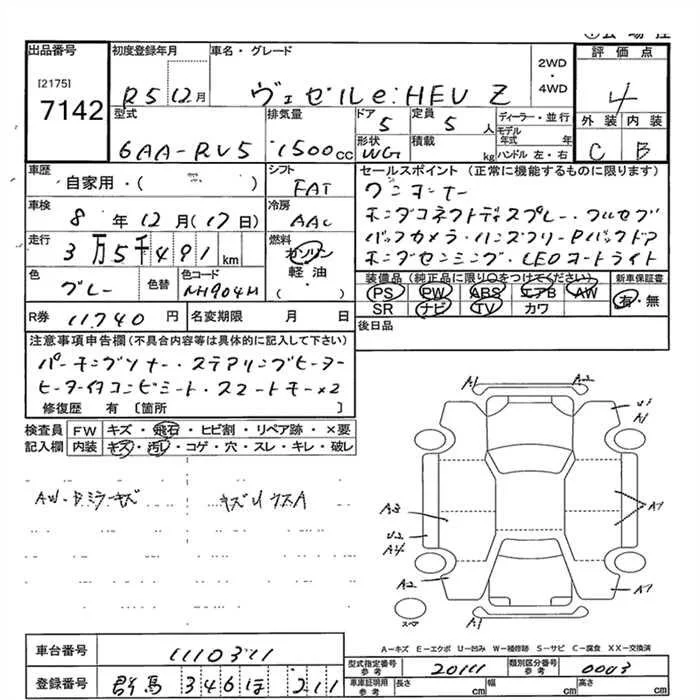 出品番号 初度登録年月 車名・グレード 評価点
[2175]
7142
R5 12月 ヴェゼル e:HEV Z
2WD
・
4WD
4
型式 排気量 ドア 定員 ディーラー・並行 外装 内装
6AA-RV5 1500cc 5 5人 モデル年式 年
形状 積載
WG kg ハンドル 左・右
C B
車歴 シフト セールスポイント (正常に機能するものに限ります)
自家用・( ) FAT ワンオーナー
車検 冷房
8年12月(17日) AAC ホンダコネクトディスプレー・フルセグ
走行 燃料
3万5千491km ガソリン バックカメラ・ハンズフリーPバックドア
軽油 ホンダセンシング・LEDオートライト
色 色替 色コード ( )
グレー NH904M
装備品 (純正品に限り○をつけてください) 新車保証書
PS PW ABS エアB AW 有・無
SR ナビ TV カワ
R券 11,740円 名変期限 月 日
後日品
注意事項申告欄(不具合内容等は具体的に記入して下さい)
パーキングソナー・ステアリングヒーター
ヒーター付コンビシート・スマートキー×2
修復歴 有 〔箇所 〕
検査員 FW キズ・飛石・ヒビ割・リペア跡・×要
記入欄 内装 キズ・汚レ・コゲ・穴・スレ・キレ・破レ
AW・Bミラーキズ
A1 A2
A1
A3 A1
U2
A2 A1
スペア A1
A=キズ E=エクボ U=凹み W=補修跡 S=サビ C=腐食 XX=交換済
車台番号 1110311
登録番号 群馬 346 ほ 211
型式指定番号 参考 20111 類別区分番号 参考 0003
車車証明記録 参考 長さ cm 幅 cm 高さ cm